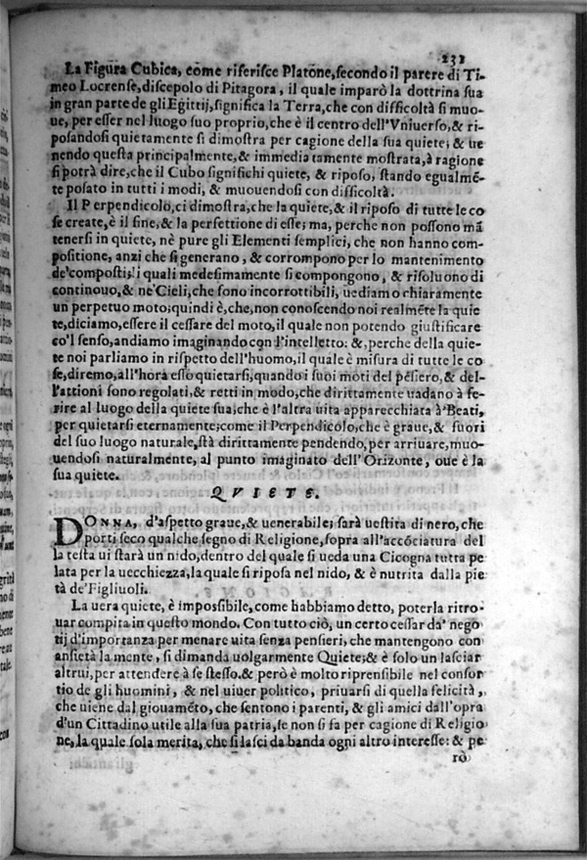 231
La Figura Cubica, come riferisce Platone, secondo il parere di Ti-
meo Locrense, discepolo di Pitagora, il quale imparò la dottrina sua
in gran parte de gli Egittij, significa la Terra, che con difficoltà si muo-
ue, per esser nel luogo suo proprio, che è il centro dell'Vniuerso, & ri-
posandosi quietamente si dimostra per cagione della sua quiete; & ue
nendo questa principalmente, & immediatamente mostrata, à ragione
si potrà dire, che il Cubo significhi quiete, & riposo, stando egualmẽ-
te posato in tutti i modi, & muouendosi con difficoltà.
Il Perpendicolo, ci dimostra, che la quiete, & il riposo di tutte le co
se create, è il fine, & la perfettione di esse; ma, perche non possono mã
tenersi in quiete, nè pure gli Elementi semplici, che non hanno com-
positione, anzi che si generano, & corrompono per lo mantenimento
de'composti; i quali medesimamente si compongono, & risoluono di
continouo, & ne'Cieli, che sono incorrottibili, uediamo chiaramente
un perpetuo moto; quindi è, che, non conoscendo noi realmẽte la quie
te, diciamo, essere il cessare del moto, il quale non potendo giustificare
co'l senso, andiamo imaginando con l'intelletto: &, perche della quie-
te noi parliamo in rispetto dell'huomo, il quale è misura di tutte le co
se, diremo, all'hora esso quietarsi, quando i suoi moti del pẽsiero, & del-
l'attioni sono regolati, & retti in modo, che dirittamente uadano à fe-
rire al luogo della quiete sua, che è l'altra uita apparecchiata à'Beati,
per quietarsi eternamente; come il Perpendicolo, che è graue, & fuori
del suo luogo naturale, stà dirittamente pendendo, per arriuare, muo-
uendosi naturalmente, al punto imaginato dell'Orizonte, oue è la
sua quiete.
QVIETE.
DONNA, d'aspetto graue, & uenerabile; sarà uestita di nero, che
porti seco qualche segno di Religione, sopra all'accõciatura del
la testa ui starà un nido, dentro del quale si ueda una Cicogna tutta pe
lata per la uecchiezza, la quale si riposa nel nido, & è nutrita dalla pie
tà de'Figliuoli.
La uera quiete, è impossibile, come habbiamo detto, poterla ritro-
uar compita in questo mondo. Con tutto ciò, un certo cessar da' nego
tij d'importanza per menare uita senza pensieri, che mantengono con
ansietà la mente, si dimanda uolgarmente Quiete; & è solo un lasciar
altrui, per attendere à se stesso, & però è molto riprensibile nel consor
tio de gli huomini, & nel uiuer politico, priuarsi di quella felicità,
che uiene dal giouamẽto, che sentono i parenti, & gli amici dall'opra
d'un Cittadino utile alla sua patria, se non si fa per cagione di Religio
ne, la quale sola merita, che si lasci da banda ogni altro interesse: & pe
rò